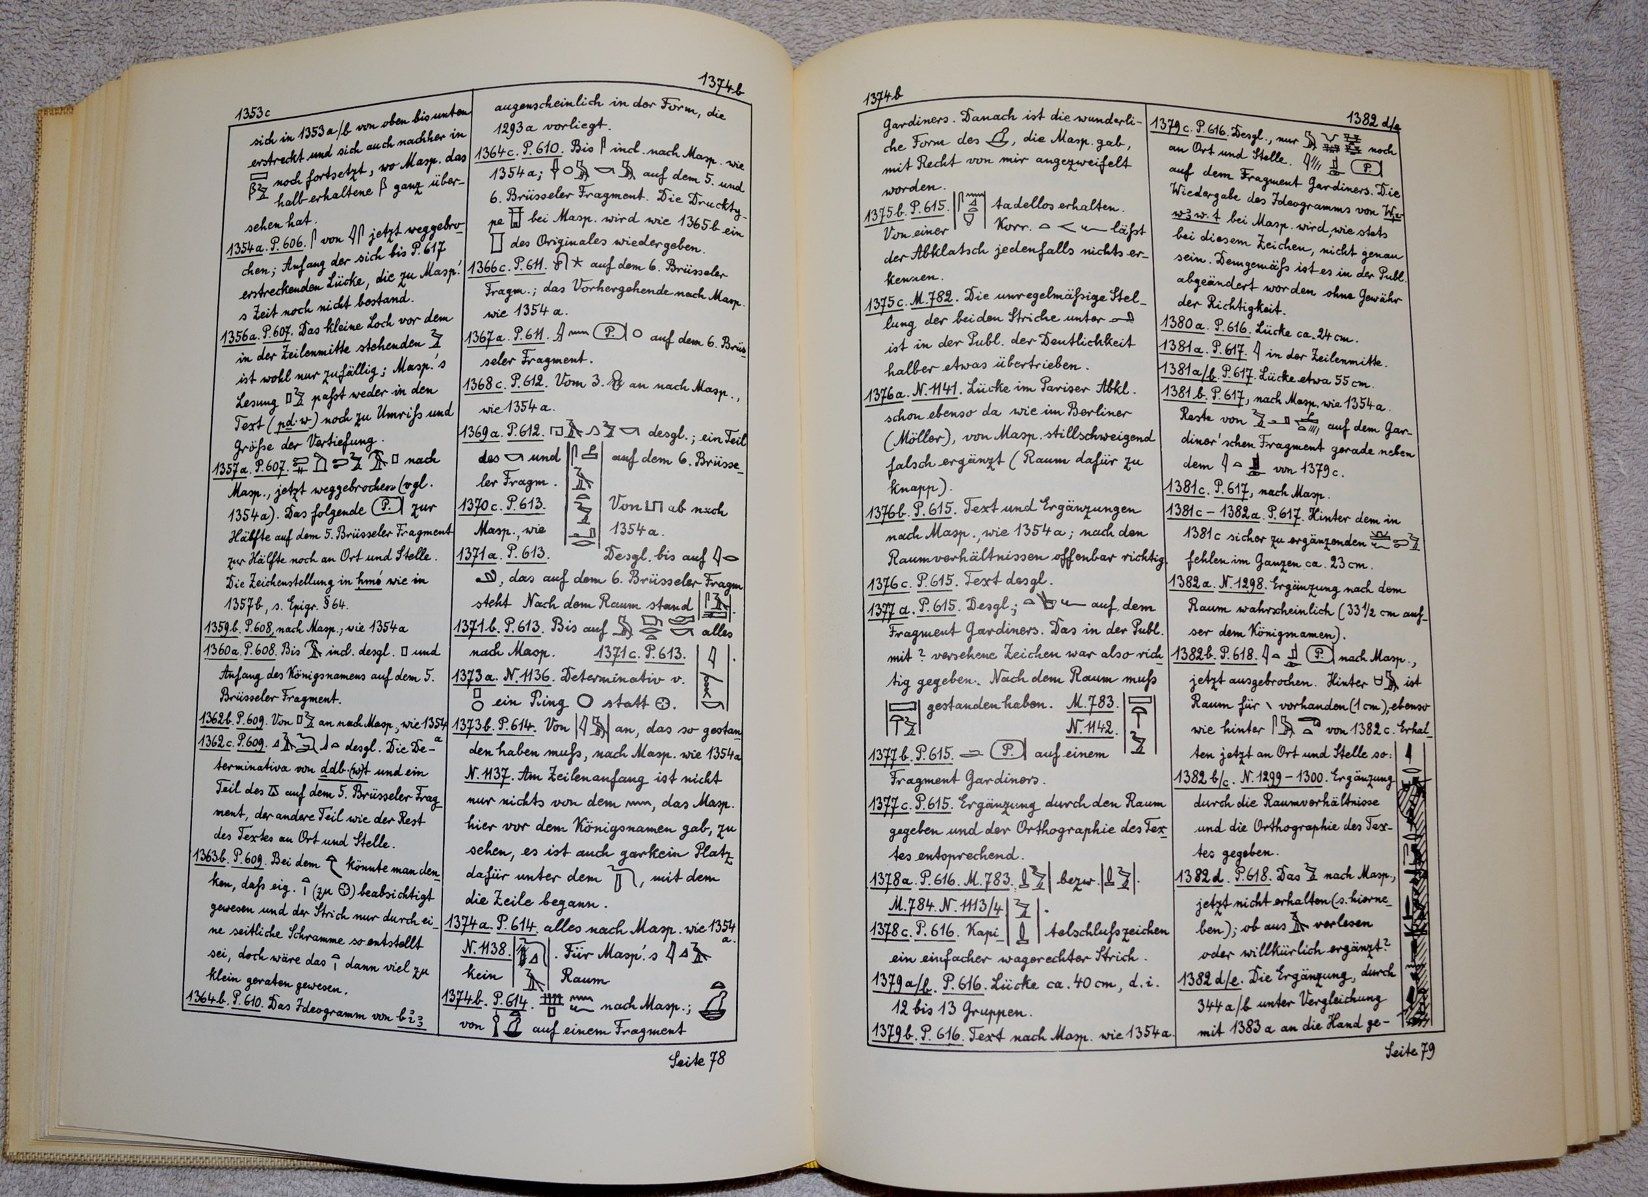 1353c
1374b
sich in 1353a/b von oben bis unten
erstreckt und sich auch nachher in
noch fortsetzt, wo Masp. das
halb erhaltene ganz über-
sehen hat.
1354a. P.606. von jetzt weggebro-
chen; Anfang der sich bis P.617
erstreckenden Lücke, die zu Masp.'
s Zeit noch nicht bestand.
1356a. P.607. Das kleine Loch vor dem
in der Zeilenmitte stehenden
ist wohl nur zufällig; Masp.'s
Lesung paßt weder in den
Text (pd.w) noch zu Umriß und
Größe der Vertiefung.
1357a. P.607. nach
Masp., jetzt weggebrochen (vgl.
1354a). Das folgende (P.) zur
Hälfte auf dem 5. Brüsseler Fragment
zur Hälfte noch an Ort und Stelle.
Die Zeichenstellung in hms wie in
1357b, s. Epigr. § 64.
1359b. P.608, nach Masp.; wie 1354a
1360a. P.608. Bis incl. desgl. und
Anfang des Königsnamens auf dem 5.
Brüsseler Fragment.
1362b. P.609. Von an nach Masp., wie 1354
a
1362c. P.609. desgl. Die De-
terminativa von ddb.(w)t und ein
Teil des auf dem 5. Brüsseler Frag-
ment, der andere Teil wie der Rest
des Textes an Ort und Stelle.
1363b. P.609. Bei dem könnte man den-
ken, daß eig. (zu ) beabsichtigt
gewesen und der Strich nur durch ei-
ne seitliche Schramme so entstellt
sei, doch wäre das dann viel zu
klein geraten gewesen.
1364b. P.610. Das Ideogramm von
augenscheinlich in der Form, die
1293a vorliegt.
1364c. P.610. Bis incl. nach Masp. wie
1354a; auf dem 5. und
6. Brüsseler Fragment. Die Druckty-
pe bei Masp. wird wie 1365b ein
des Originales wiedergeben.
1366c. P.611. auf dem 6. Brüsseler
Fragm.; das Vorhergehende nach Masp.
wie 1354a.
1367a. P.611. (P.) auf dem 6. Brüs
seler Fragment.
1368c. P.612. Vom 3. an nach Masp.,
wie 1354a.
1369a. P.612. desgl.; ein Teil
des und auf dem 6. Brüsse-
ler Fragm.
1370c. P.613. Von ab nach
Masp., wie 1354a.
1371a. P.613. Desgl. bis auf
, das auf dem 6. Brüsseler Fragm
steht Nach dem Raum stand
1371b. P.613. Bis auf alles
nach Masp. 1371c. P.613.
1373a. N.1136. Determinativ v.
ein Ring statt .
1373b. P.614. Von an, das so gestan
den haben muß, nach Masp. wie 1354a
N.1137. Am Zeilenanfang ist nicht
nur nichts von dem , das Masp.
hier vor dem Königsnamen gab, zu
sehen, es ist auch garkein Platz
dafür unter dem , mit dem
die Zeile begann.
1374a. P.614. alles nach Masp. wie 1354
a.
N.1138. Für Masp.'s
kein Raum
1374b. P.614. nach Masp.;
von auf einem Fragment
Seite 78
1374b
1382 d/e
Gardiners. Danach ist die wunderli-
che Form des , die Masp. gab,
mit Recht von mir angezweifelt
worden.
1375b. P.615. tadellos erhalten.
Von einer Korr. läßt
der Abklatsch jedenfalls nichts er-
kennen.
1375c. M.782. Die unregelmäßige Stel-
lung der beiden Striche unter
ist in der Publ. der Deutlichkeit
halber etwas übertrieben.
1376a. N.1141. Lücke im Pariser Abkl.
schon ebenso da wie im Berliner
(Möller), von Masp. stillschweigend
falsch ergänzt (Raum dafür zu
knapp).
1376b. P.615. Text und Ergänzungen
nach Masp., wie 1354a; nach den
Raumverhältnissen offenbar richtig.
1376c. P.615. Text desgl.
1377a. P.615. Desgl.; auf dem
Fragment Gardiners. Das in der Publ.
mit ? versehene Zeichen war also rich
tig gegeben. Nach dem Raum muß
gestanden haben. M.783.
N.1142.
1377b. P.615. (P.) auf einem
Fragment Gardiners.
1377c. P.615. Ergänzung durch den Raum
gegeben und der Orthographie des Tex-
tes entsprechend.
1378a. P.616. M.783. bezw.
M.784. N.1113/4 .
1378c. P.616. Kapi telschlußzeichen
ein einfacher wagerechter Strich.
1379a/b. P.616. Lücke ca. 40 cm, d.i.
12 bis 13 Gruppen.
1379b. P.616. Text nach Masp. wie 1354a
1379c. P.616. Desgl., nur noch
an Ort und Stelle. (P.)
auf dem Fragment Gardiners. Die
Wiedergabe des Ideogramms von
bei Masp. wird, wie stets
bei diesem Zeichen, nicht genau
sein. Demgemäß ist es in der Publ.
abgeändert worden ohne Gewähr
der Richtigkeit.
1380a. P.616. Lücke ca. 24 cm.
1381a. P.617. in der Zeilenmitte.
1381a/b. P.617. Lücke etwa 55 cm.
1381b. P.617, nach Masp. wie 1354a.
Reste von auf dem Gar-
diner'schen Fragment gerade neben
dem von 1379c.
1381c. P.617, nach Masp.
1381c-1382a. P.617. Hinter dem in
1381c sicher zu ergänzenden
fehlen im Ganzen ca. 23 cm.
1382a. N.1298. Ergänzung nach dem
Raum wahrscheinlich (33 1/2 cm aus-
ser dem Königsnamen).
1382b. P.618. (P.) nach Masp.,
jetzt ausgebrochen. Hinter ist
Raum für \ vorhanden (1 cm), ebenso
wie hinter von 1382c. Erhal-
ten jetzt an Ort und Stelle so:
1382 b/c. N.1299-1300. Ergänzung
durch die Raumverhältnisse
und die Orthographie des Tex-
tes gegeben.
1382d. P.618. Das nach Masp.,
jetzt nicht erhalten (s. hierne-
ben); ob aus verlesen
oder willkürlich ergänzt?
1382d/e. Die Ergänzung, durch
344a/b unter Vergleichung
mit 1383a an die Hand ge-
Seite 79